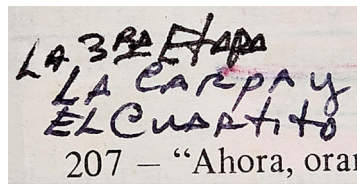 LA 3RA EtAPA
LA CARPA y
EL CUARTITO
207 – “Ahora, orar